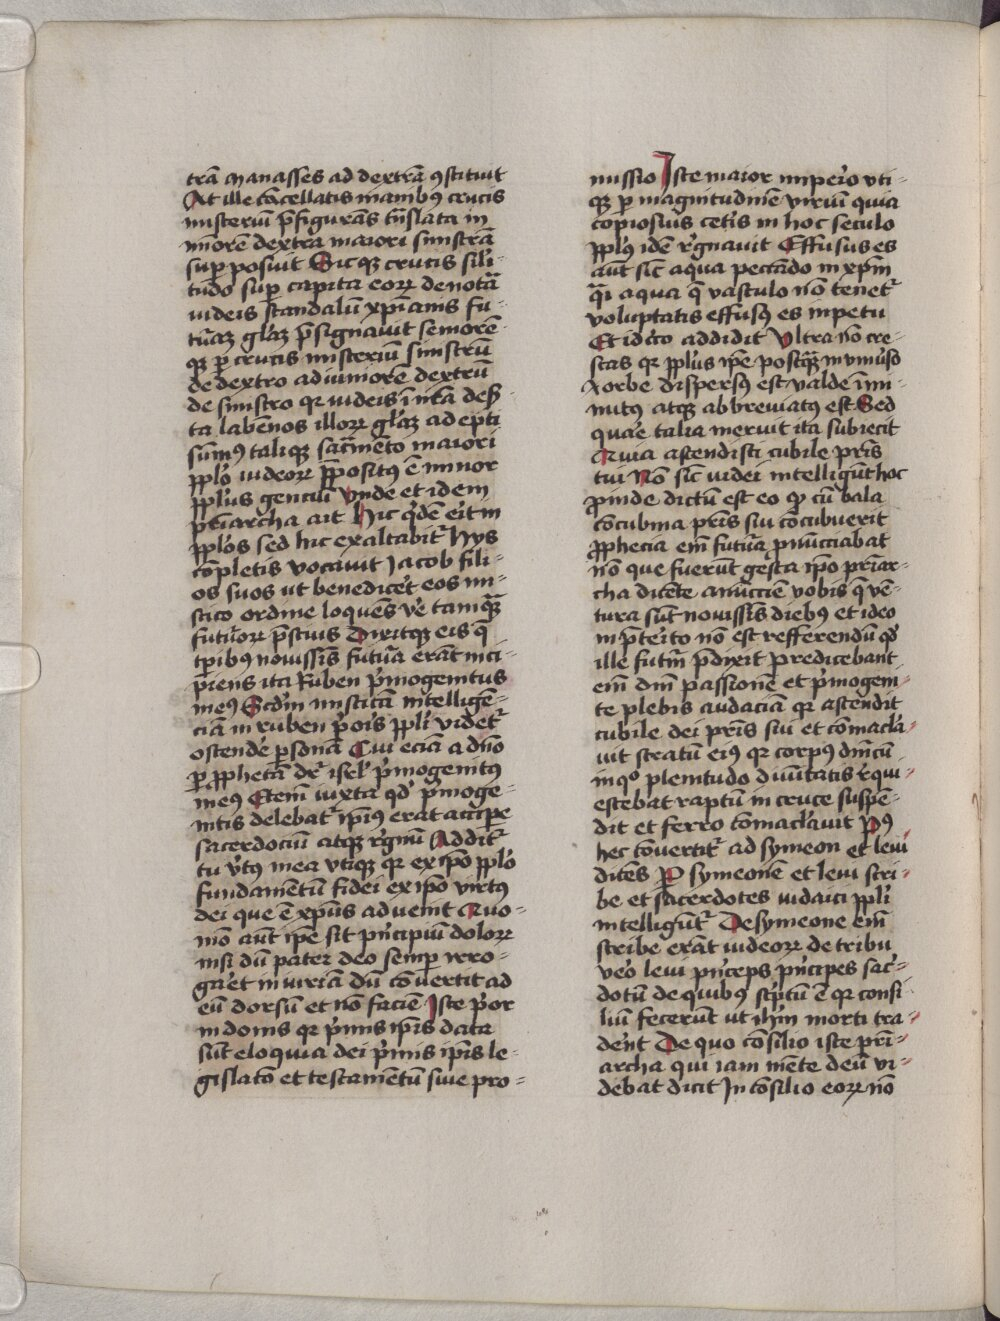 trā manasses ad dextrā ꝯstituit
At ille cācellatis manibꝰ crucis
misteriū p̄figurās trāslata in
miorē dextra maiori sinistrā
suꝑposuit Sicqꝫ crucis sili-
tudo suꝑ capita eoꝝ denotā
iudeis scandalū xp̄ianis fu-
turāqꝫ gl̄iaꝫ p̄signauit seniorē
qꝫ ꝑ crucis misteriū sinistrū
de dextro ad iuniorē dextrū
de sinistro qꝛ iudeis ī
ta labētibꝰ illoꝝ gl̄iaꝫ adepti
sumꝰ taliqꝫ sacr̄mēto maiori
ppl̄o iudeoꝝ p̄positꝰ ē minor
ppl̄us gentiū Vnde et idem
pr̄iarcha ait Hic q̄dē erit in
ppl̄os sed hic exaltabit̄ Hys
cōpletis vocauit Jacob fili-
os suos ut benedicēt eos mi-
stico ordine loquēs v̄e tamqꝫ
futuroꝝ p̄scius Dixitqꝫ eis q̄
tp̄ibus nouissīs futura erāt inci-
piens ita Ruben p̄mogenitus
meꝰ Scdm̄ misticā intelligē-
ciā in ruben p̄oris ppl̄i videt̄
ostende ꝑsona Cui eciā a dn̄o
ꝑ ꝓphetā dr̄ isrl̄ p̄mogenitꝰ
meꝰ Etem̄ iuxta qd̄ p̄moge-
nitis debebat̄ ip̄iꝰ erat accipe
sacerdociū atqꝫ regnū Addit̄
tu v̄tꝰ mea vtiqꝫ qꝛ ex ip̄o ppl̄o
fundamētū fidei ex ip̄o virtꝰ
dei que ē xp̄us aduenit Quo-
mō aūt ip̄e sit p̄ncipiū doloꝝ
nisi dū pater deo semꝑ irro-
garet iniuriā dū cōuertit ad
eū dorsū et nō faciē Iste p̄or
in donis qꝛ p̄mis ip̄is data
sūt eloquia dei p̄mis ip̄is le-
gislatō et testamētū siue pro-
missio Iste maior imperio vti-
qꝫ ꝑ magnitudinē viriū quia
copiosius ceteris in hoc seculo
ppl̄us idē regnauit Effusus es
aūt sic̄ aqua peccādo in xp̄m
q̄si aqua q̄ vasculo nō tenet̄
voluptatis effusꝰ es inpetu
Et idcō addidit Vltra nō cre-
scas qꝛ ppl̄us ip̄e postqꝫ in vniūso
orbe dispersꝰ est valde īmi-
nutꝰ atqꝫ abbreuiatꝰ est Sed
quare talia meruit ita subiecit
Quia ascendisti cubile pr̄is
tui Nō sic̄ iudei intelligūt hoc
ꝓinde dictū est eo qꝫ cū bala
cōcubina pr̄is sui cōcubuerit
ꝓphecia em̄ futura p̄nūcciabat
nō que fuerūt gesta ip̄o pr̄iar-
cha dicēte annūcciē vobis q̄ vē-
tura sūt nouissīs diebꝰ et ideo
in p̄terito nō est refferendū qd̄
ille futur̄ p̄dixit predicebant
em̄ dn̄i passionē et p̄mogeni-
te plebis audaciā qꝛ ascendit
cubile dei pr̄is sui et cōmacla-
uit stratū eiꝰ qꝛ corpꝰ dn̄icū
in qͦ plenitudo diuītatis requi-
escebat raptū in cruce suspē-
dit et ferro cōmaclauit Pꝰ
hec cōuertit̄ ad symeon et leui
dicēs Per symeonē et leui scri-
be et sacerdotes iudaici ppl̄i
intelligūt̄ De symeone em̄
scribe erāt iudeoꝝ de tribu
vero leui p̄nceps p̄ncipes sac̄-
dotū de quibꝰ sc̄ptū ē qꝛ consi
liū fecerūt ut ih̄m morti tra-
derēt De quo cōsilio iste pr̄i-
archa qui iam mēte deū vi-
debat dicit In cōsilio eoꝝ nō